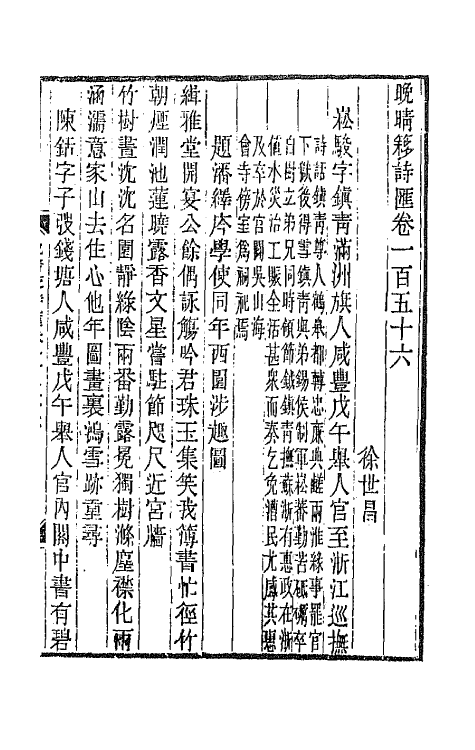 晚晴簃詩匯卷一百五十六
徐世昌
崧駿字鎮青滿洲旗人咸豐戊午舉人官至浙江巡撫
詩話鎮青尊人鶴皋都轉忠廉與鹺兩淮緣事罷官
下獄後得雪鎮青與弟錫侯制軍崧蕃勤苦砥礪卒
自樹立弟兄同時領節鉞鎮青撫蘇浙有惠政在浙
値水災治工賑全活甚衆而奏乞免漕民尤感其惠
及卒於官闢吳山海
會寺傍室爲祠祀焉
題潘繹庭學使同年西園涉趣圖
緝雅堂開宴公餘偶詠觴吟君珠玉集笑我簿書忙徑竹
朝煙潤池蓮曉露香文星嘗駐節咫尺近宮牆
竹樹晝沈沈名園靜綠陰兩番勤露冕獨樹滌塵襟化雨
涵濡意家山去住心他年圖畫裏鴻雪跡重尋
陳銛字子弢錢塘人咸豐戊午舉人官內閣中書有碧